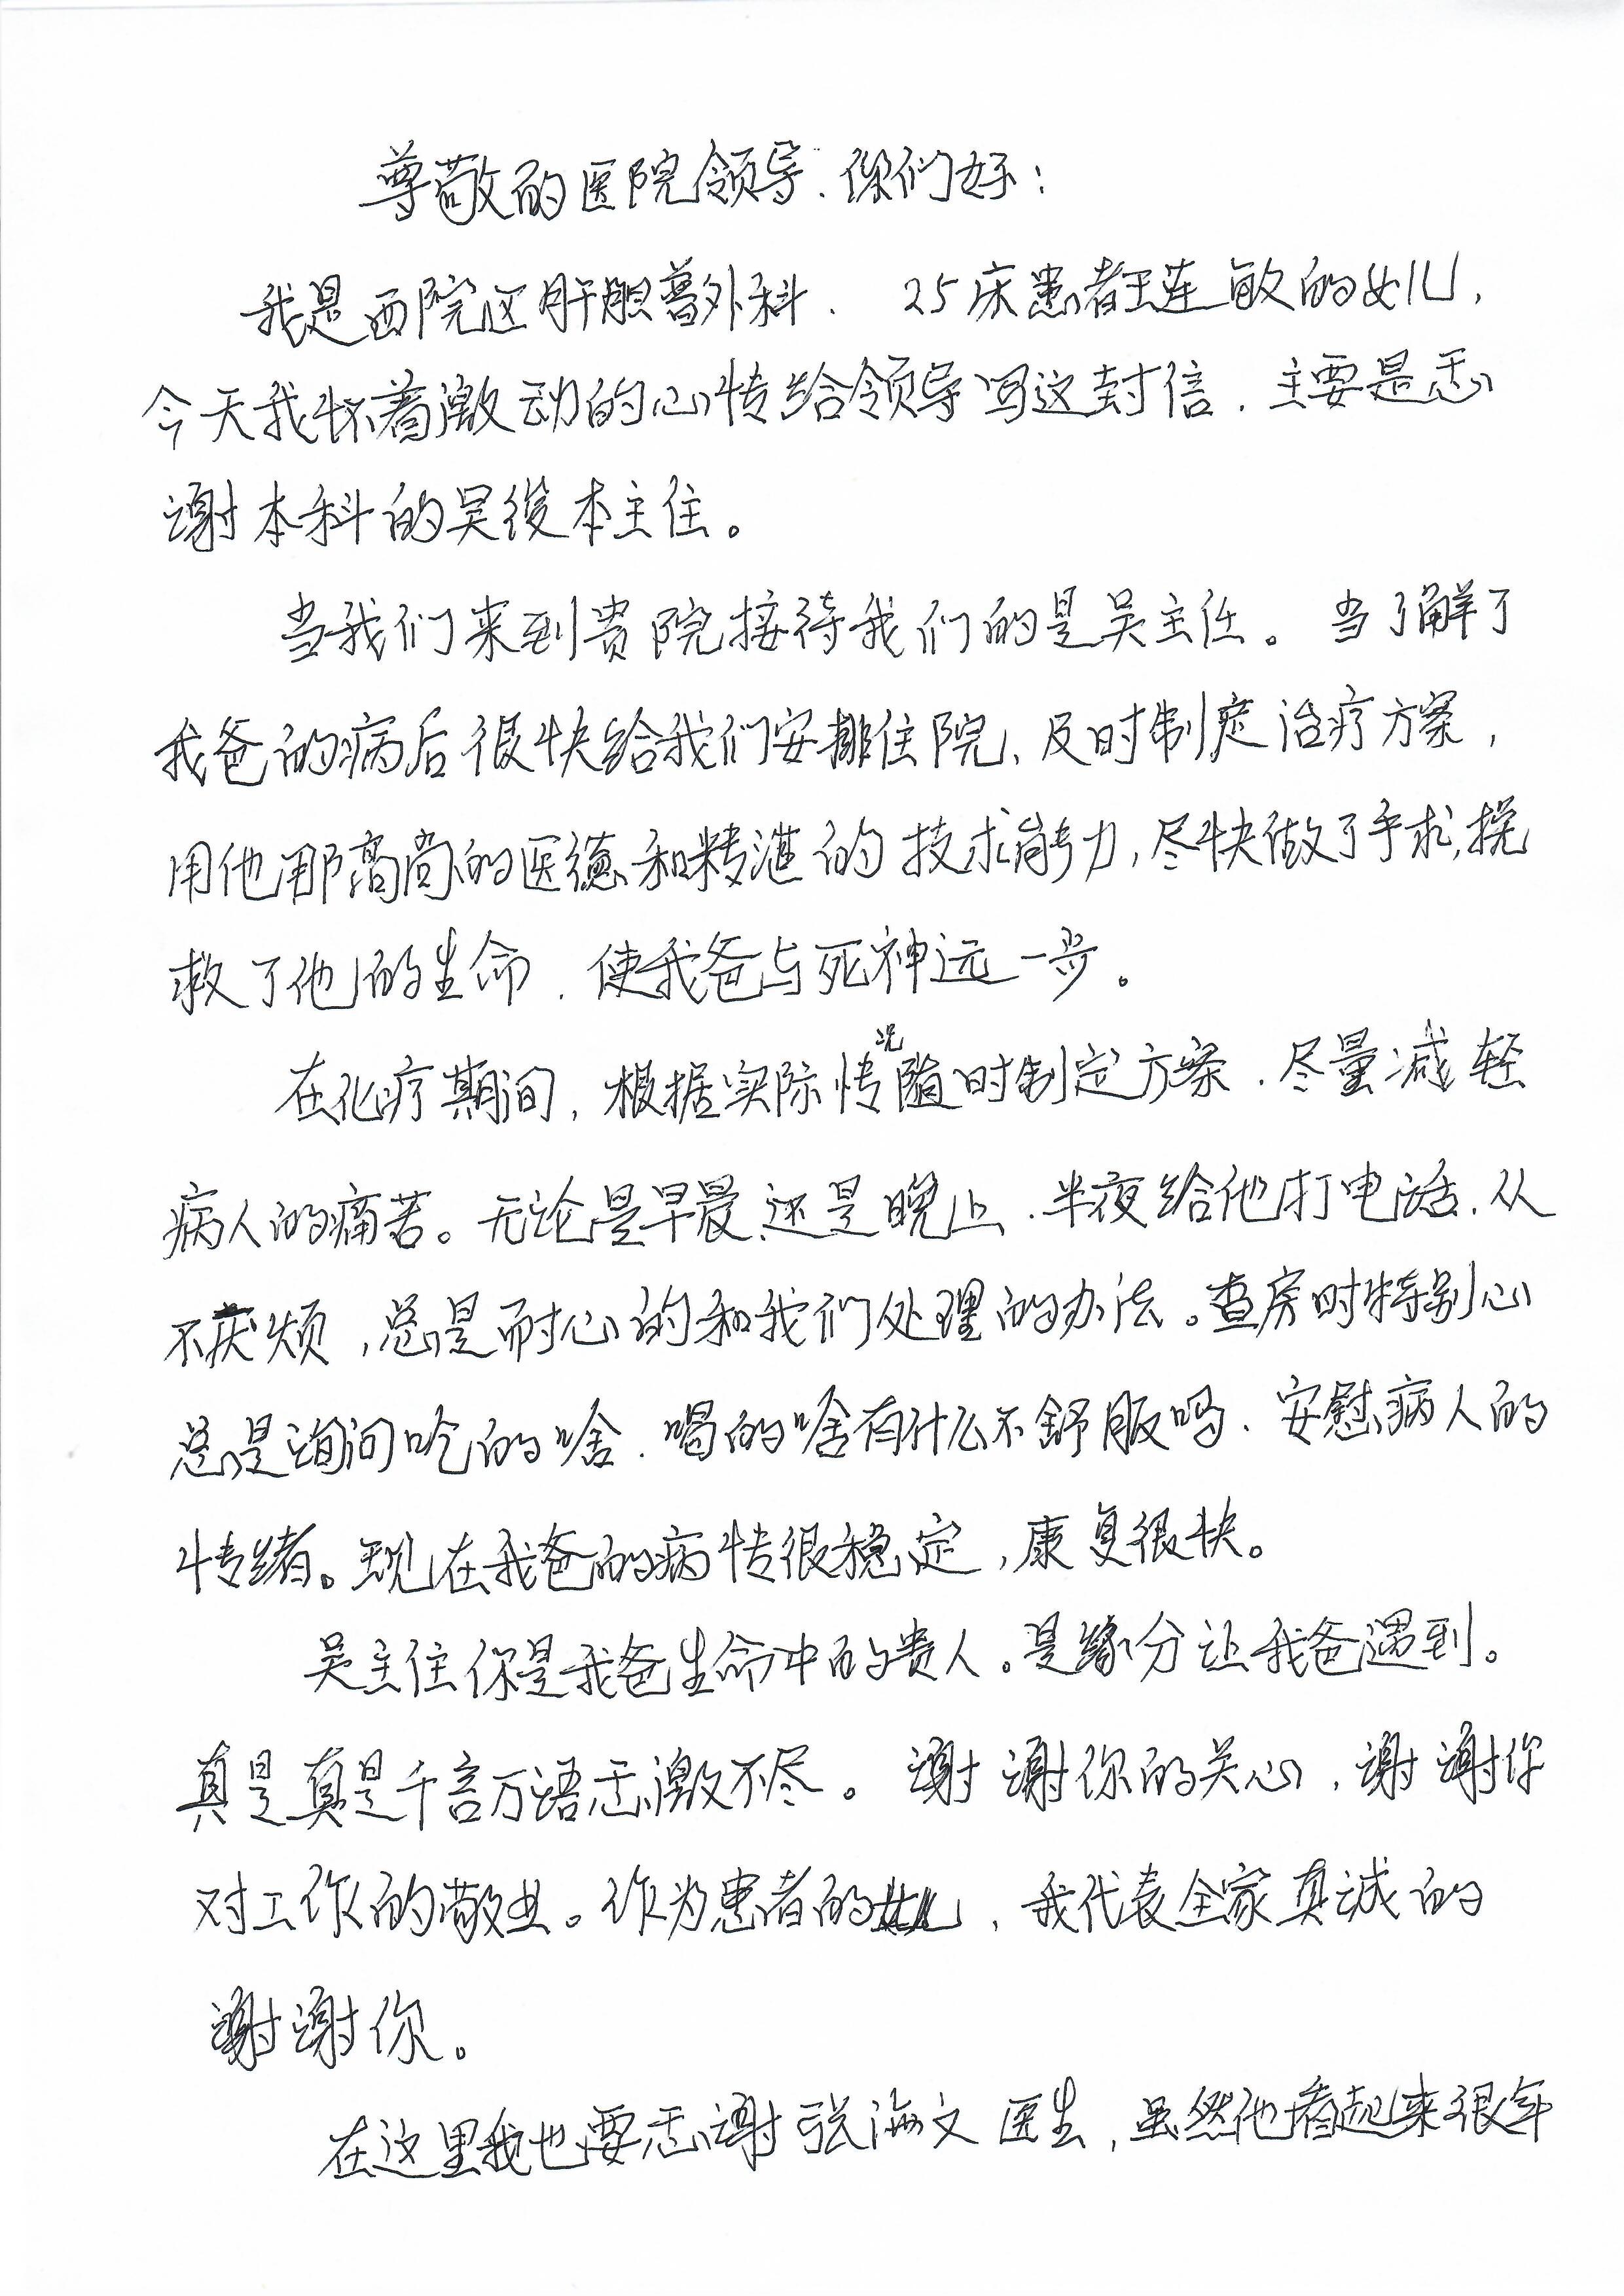 尊敬的医院领导、你们好：
我是西院区肝胆普外科、25床患者王连敏的女儿，
今天我怀着激动的心情给领导写这封信、主要是感
谢本科的吴俊本主任。
当我们来到贵院接待我们的是吴主任。当了解了
我爸的病后很快给我们安排住院、及时制定治疗方案，
用他那高尚的医德和精湛的技术能力，尽快做了手术，挽
救了他的生命、使我爸与死神远一步。
在化疗期间，根据实际情况随时制定方案、尽量减轻
病人的痛苦。无论是早晨、还是晚上、半夜给他打电话、从
不厌烦，总是耐心的和我们处理的办法。查房时特别心
总是询问吃的啥、喝的啥有什么不舒服吗、安慰病人的
情绪。现在我爸的病情很稳定，康复很快。
吴主任你是我爸生命中的贵人。是缘分让我爸遇到。
真是真是千言万语感激不尽。谢谢你的关心，谢谢你
对工作的敬业。作为患者的女儿，我代表全家真诚的
谢谢你。
在这里我也要感谢张海文医生，虽然他看起来很年